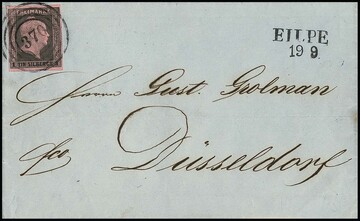 FREIMARKE
370
1 EIN SILBERGR. 1
EILPE
19 9
Herrn Gust. Grolman
fco
Düsseldorf